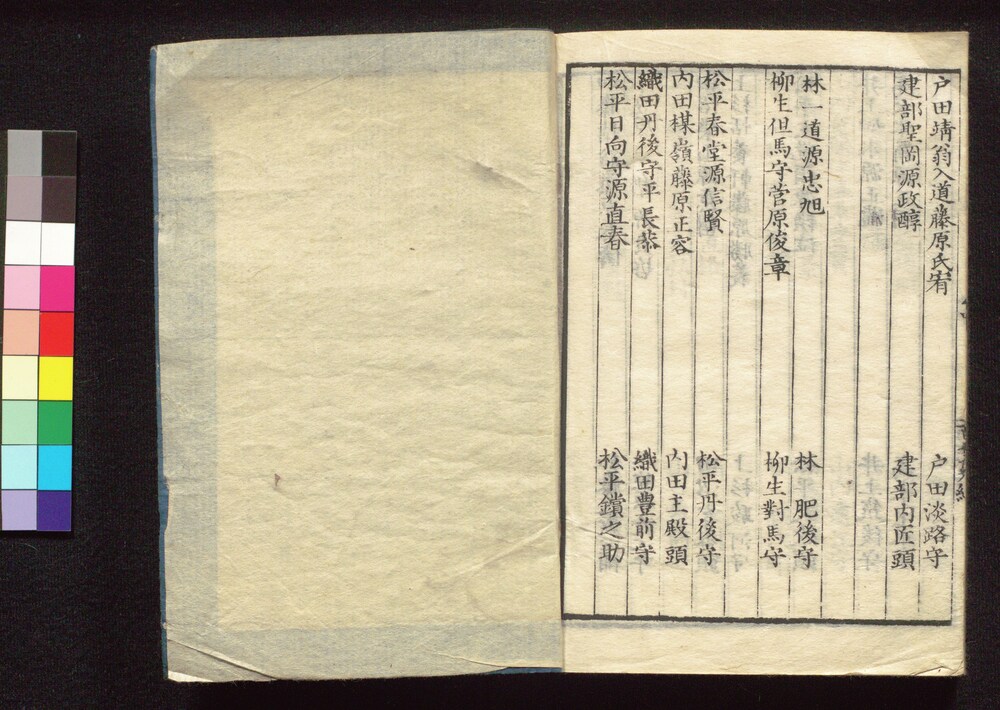 戸田靖翁入道藤原氏宥 戸田淡路守
建部聖岡源政醇 建部内匠頭
林一道源忠旭 林 肥後守
柳生但馬守菅原俊章 柳生對馬守
松平春堂源信賢 松平丹後守
内田楳嶺藤原正容 内田主殿頭
織田丹後守平長恭 織田豊前守
松平日向守源直春 松平鑚之助